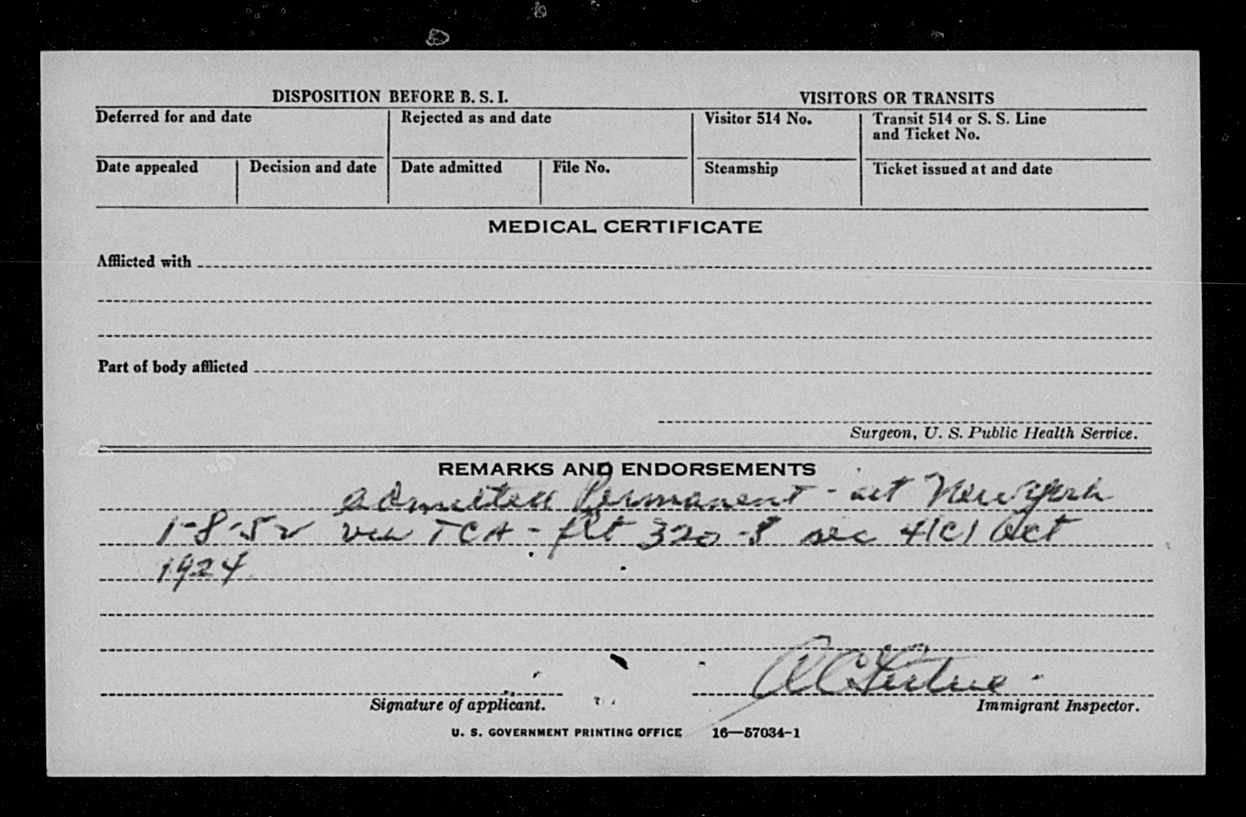 DISPOSITION BEFORE B. S. I.
VISITORS OR TRANSITS
Deferred for and date
Rejected as and date
Visitor 514 No.
Transit 514 or S. S. Line
and Ticket No.
Date appealed
Decision and date
Date admitted
File No.
Steamship
Ticket issued at and date
MEDICAL CERTIFICATE
Afflicted with
Part of body afflicted
Surgeon, U. S. Public Health Service.
REMARKS AND ENDORSEMENTS
admitted Permanent - at New York
1-8-52 via TCA - flt 320-8 sec 4(c) Act
1924
Signature of applicant.
Immigrant Inspector.
U. S. GOVERNMENT PRINTING OFFICE 16—57034-1